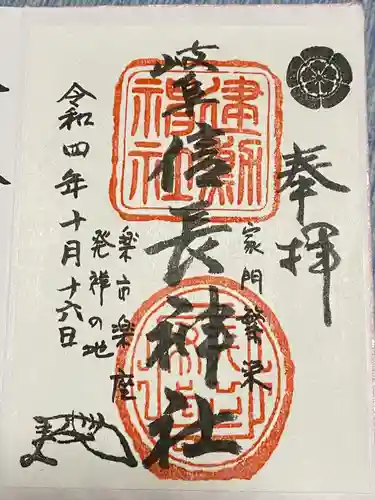 奉拝
家門繁栄
岐阜信長神社
建勲
神社
楽市楽座
発祥の地
令和四年十月十六日